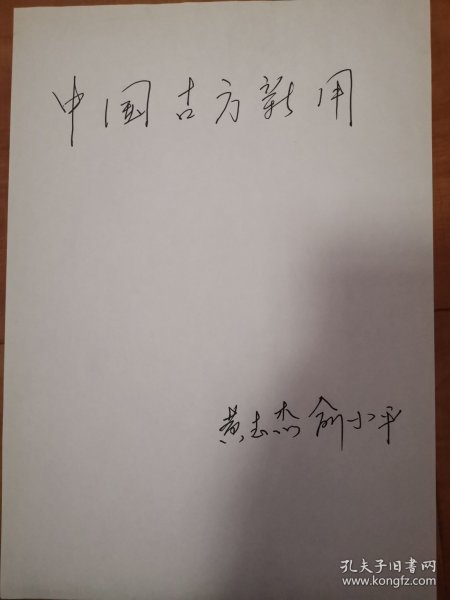 中国古方新用
黄志杰 俞小平
孔夫子旧书网
www.kongfz.com